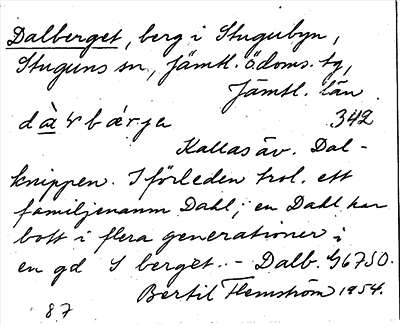 Dalberget, berg i Stugubyn,
Stuguns sn, Jämtl. ödoms. tg,
Jämtl. län
342
Kallas äv. Dal-
knippen. I förleden trol. ett
familjenamn Dahl; en Dahl har
bott i flera generationer i
en gd S berget. - Dalb. G6750.
Bertil Flemström 1954.
87